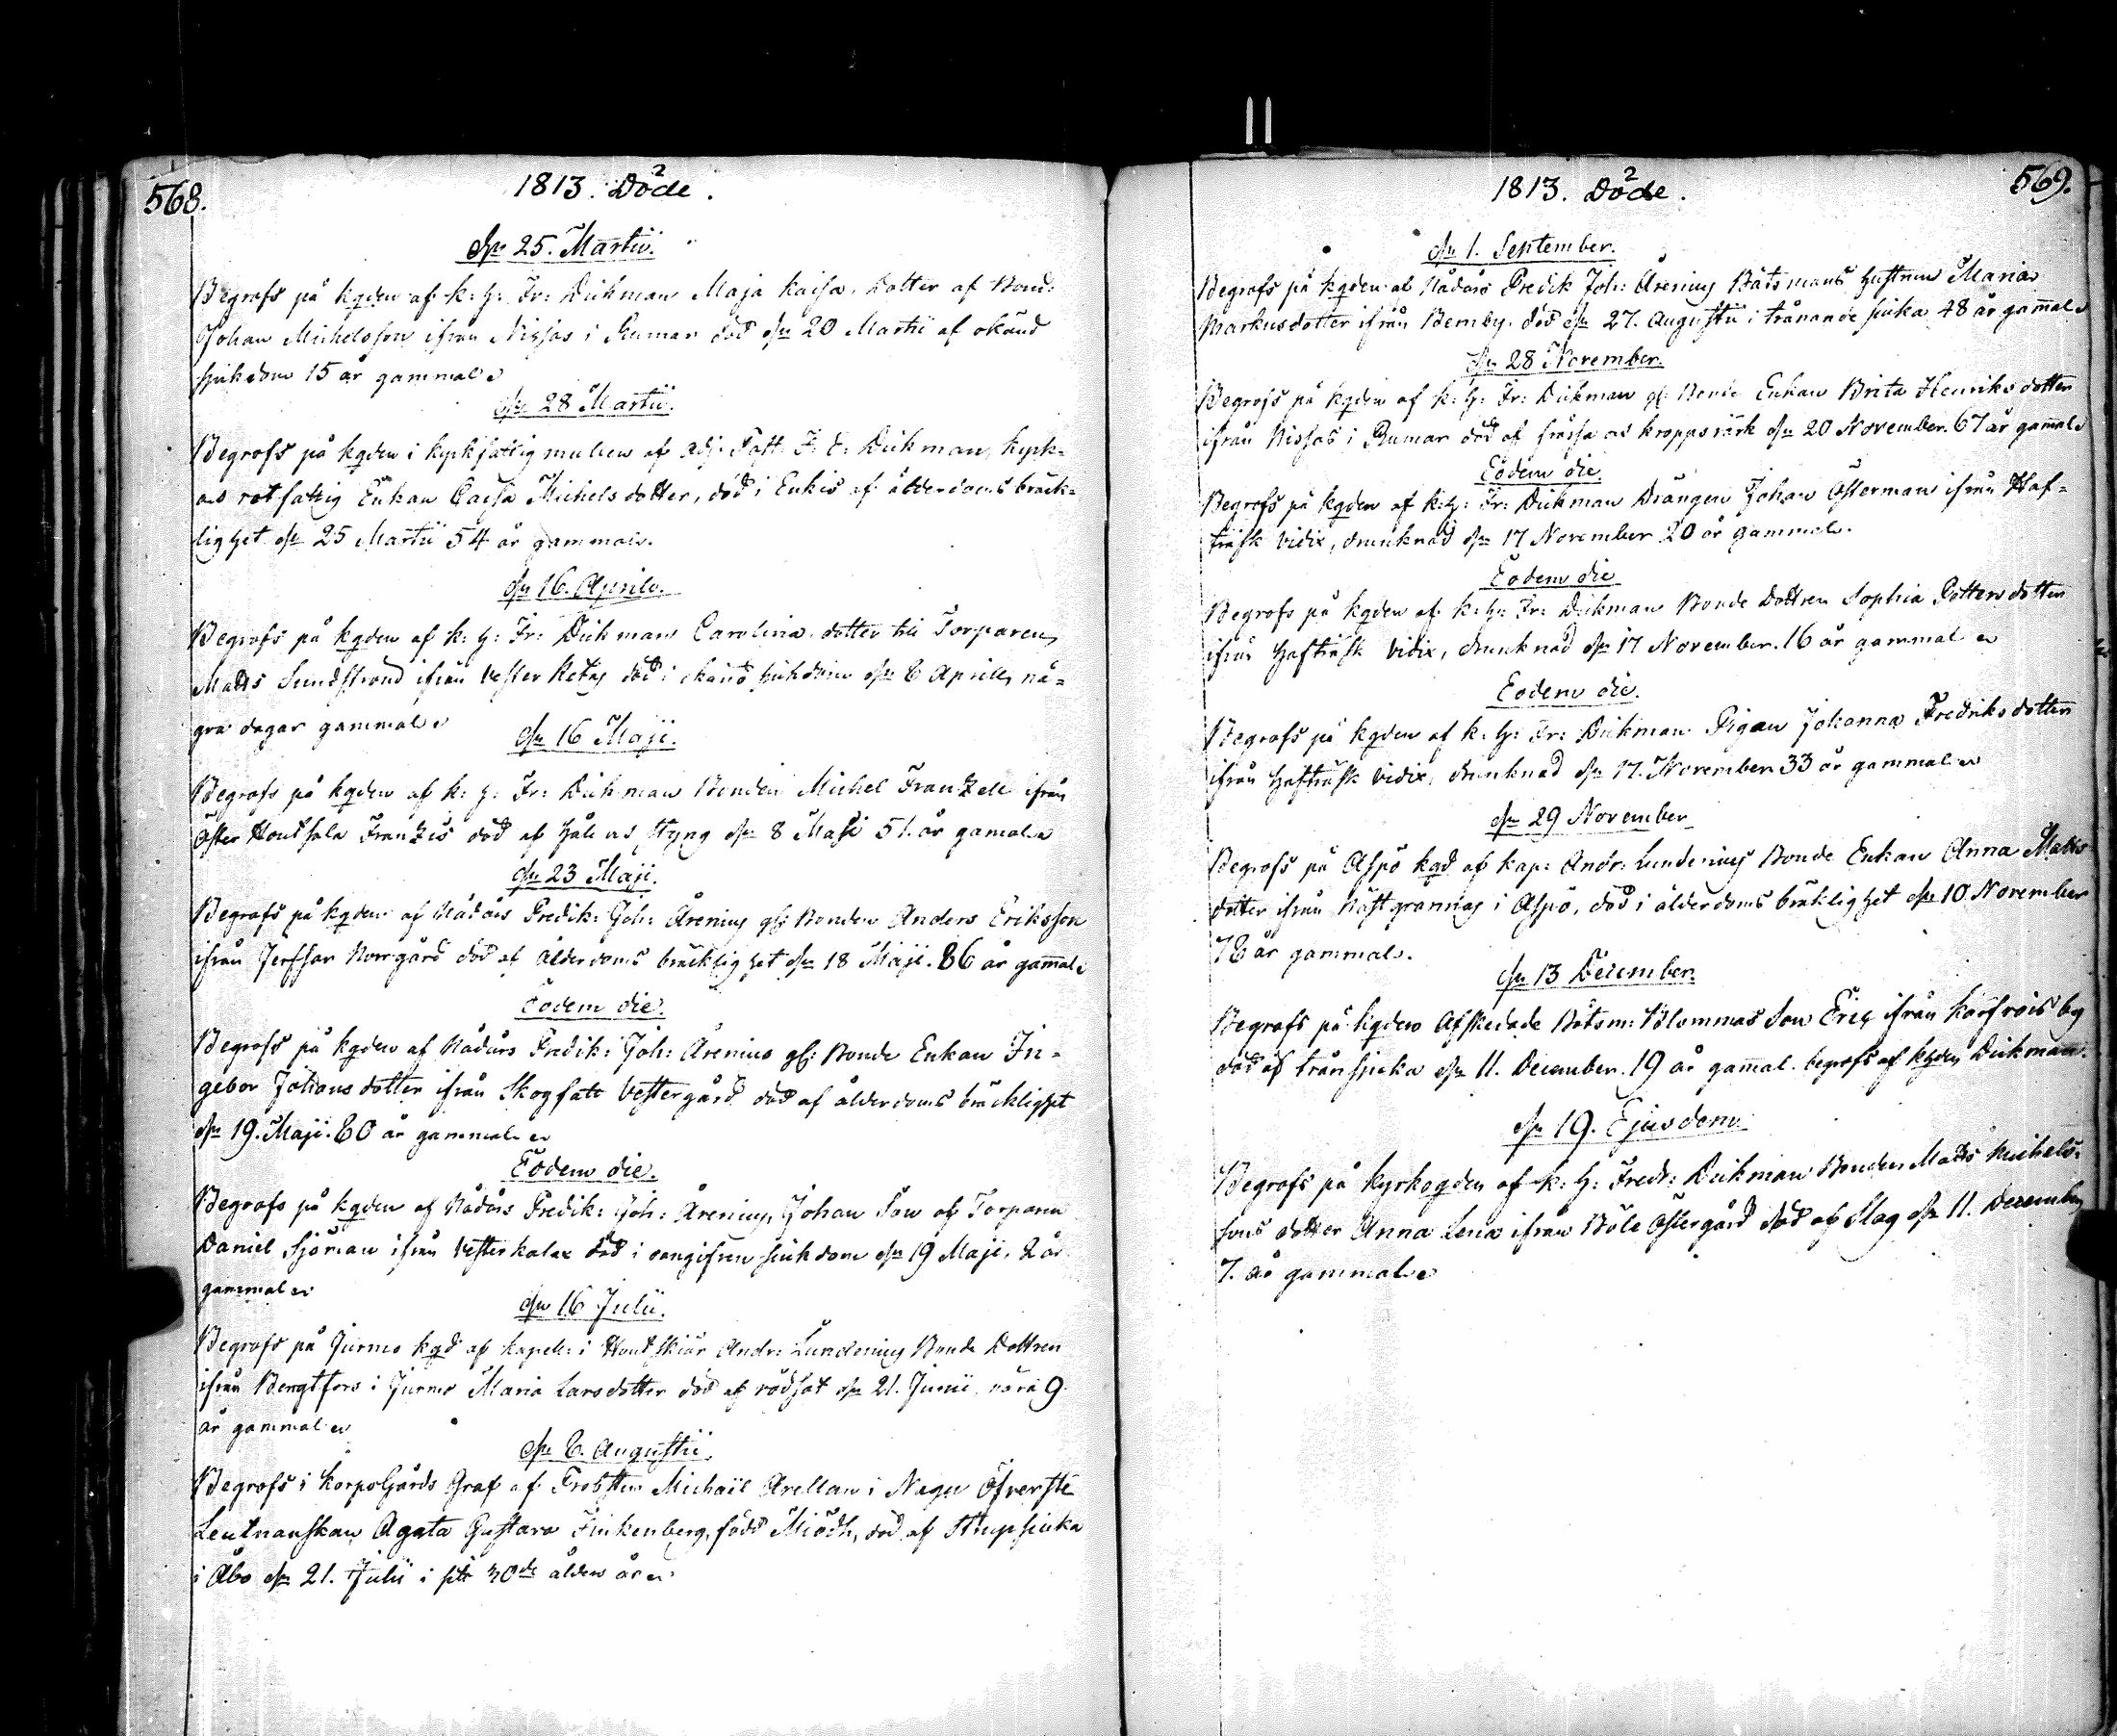 568.
1813. Döde.
dn 25. Martii.
Begrofs på kgden af k: h: Fr: Dickman Maja Kaisa, Dotter af Bond:
Johan Michelsson ifrån Nissas i Rumar död dn 20 Martii af okänd
sjukdom 15 år gammal
dn 28 Martii.
Begrofs på kgden i kyrkfattig mullen af Adj: Past: F: E: Dickman, kyrk-
rotfattig Enkan Caisa Michelsdotter, död i Enkis af ålderdoms bräck-
lighet dn 25 Martii 54 år gammal.
dn 16. Aprils.
Begrofs på kgden af k: h: Fr: Dickman Carolina dotter till Torparen
Matts Sundstrand ifrån Vester Retais död i okänd sjukdom dn 6 Aprill, nå-
gra dagar gammal
dn 16 Maji.
Begrofs på kgden af k: h: Fr: Dickman Bonden Michel Franzell ifrån
Öster Houtsala Franzis död af håll as styng dn 8 Maji 51. år gamal
dn 23 Maji.
Begrofs på kgden af Nådårs Predik: Joh: Ärenius gl: Bonden Anders Eriksson
ifrån Jerfsar Norrgård död af ålderdoms bräcklighet dn 18 Maji. 86 år gamal
Eodem die.
Begrofs på kgden af Nådårs Predik: Joh: Ärenius gl: Bonde Enkan In-
gebor Johansdotter ifrån Skogfatt Vestergård död af ålderdoms bräcklighet
dn 19. Maji. 80 år gammal
Eodem die.
Begrofs på kgden af Nådårs Predik: Joh: Ärenius, Johan Son af Torparen
Daniel Sjöman ifrån Vesterkalax död i oangifven sjukdom dn 19 Maji, 2 år
gammal
dn 16 Julii.
Begrofs på Jurmo kgd af kapell: i Houtskiär Andr: Lundenius Bonde Dottren
ifrån Bengtfors i Jurmo Maria Larsdotter död af rödsot dn 21. Junii, nära 9
år gammal
dn 6. Augustii.
Begrofs i Korpo Gårds Graf af Probsten Michaël Avellan i Nagu Öfverste
Leutnanskan Agata Gustava Finkenberg, född Miödh, död af Strupsjuka
i Åbo dn 21. Julii i sitt 30de ålders år
569.
1813. Döde.
dn 1. September.
Begrofs på kgden af Nådårs Predik Joh: Ärenius Båtsmans Hustrun Maria
Markusdotter ifrån Bemby, död dn 27. Augustii i trånande sjuka 48 år gamal
dn 28 November.
Begrofs på kgden af k: h: Fr: Dickman gl: Bonde Enkan Brita Henriksdotter
ifrån Nissas i Rumar död af frässa as kroppsvärk dn 20 November. 67 år gamal
Eodem die.
Begrofs på kgden af k: h: Fr: Dickman Drängen Johan Österman ifrån Haf-
träsk Vidix, drunknad dn 17 November 20 år gammal.
Eodem die
Begrofs på kgden af k: h: Fr: Dickman Bonde Dottren Sophia Pettersdotter
ifrån Hafträsk Vidix, drunknad dn 17 November. 16 år gammal
Eodem die.
Begrofs på kgden af k: h: Fr: Dickman Pigan Johanna Fredriksdotter
ifrån Hafträsk Vidix, drunknad dn 17. November 33 år gammal
dn 29 November
Begrofs på Aspö kgd af kap: Andr: Lundenius Bonde Enkan Anna Matts
dotter ifrån Nästgrannas i Aspö, död i ålderdoms bräklighet dn 10 November
76 år gammal.
dn 13 December.
Begrofs på kgden Afskedade Båtsm: Blommas Son Eric ifrån Korfvois by
död af trånsjuka dn 11. December. 19 år gamal. begrofs af khden Dickman.
dn 19. Ejusdem
Begrofs på kyrkogden af k: h: Fredr: Dickman Bonden Matts Michels-
sons dotter Anna Lena ifrån Böle Östergård död af Slag dn 11. December
7. år gammal